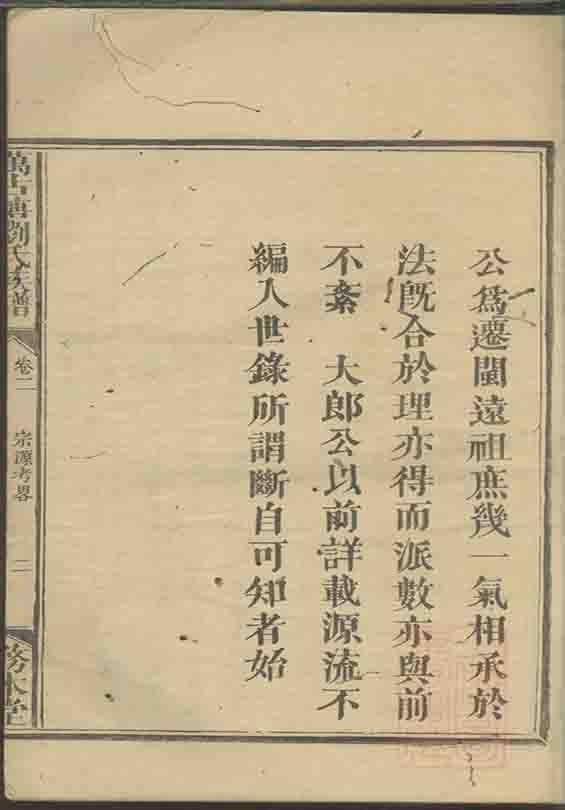 公爲遷閩遠祖庶幾一氣相承於
法旣合於理亦得而派數亦與前
不紊　大郎公以前詳載源流不
編入世錄所謂斷自可知者始
劉氏族譜
卷二
宗源考畧
二
務本堂